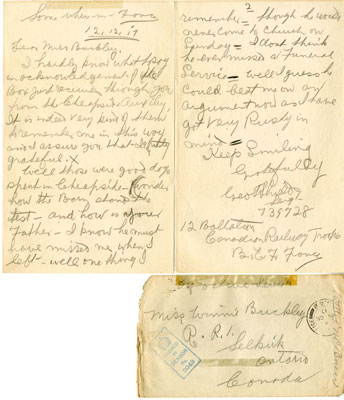 Somewhere in France
12.12.17
Dear Miss Buckley.
I hardly know what to say
in acknowledgement of the
Box just received through you
from the Cheapside
It is indeed very kind of them
to remember me in this way
and I assure you that
grateful. X
Well those were good days
spent in Cheapside - I wonder
how the Barn stood the
test - and how is your
Father - I know he must
have missed me when I
left - well one thing I
2
remember - though he would
never come to Church on
Sunday = I dont think
he ever missed a Funeral
Service = well I guess he
could beat me on an
argument now as I have
got very Rusty in
mind =
Keep Smiling
Gratefully
Geo
Sgt.
735728
12 Battalion
Canadian Railway Troops
B.E.F. France
Miss Winnie Buckley
R.R.1.
Selkirk
Ontario
Canada